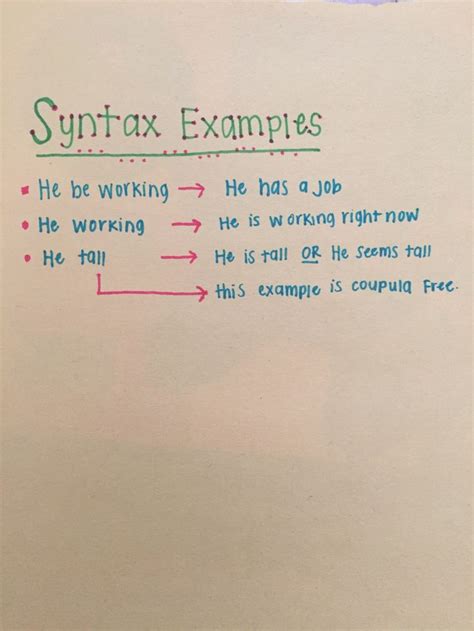 Syntax Examples
• He be working → He has a job
• He working → He is working right now
• He tall → He is tall OR He seems tall
→ this example is coupula free.